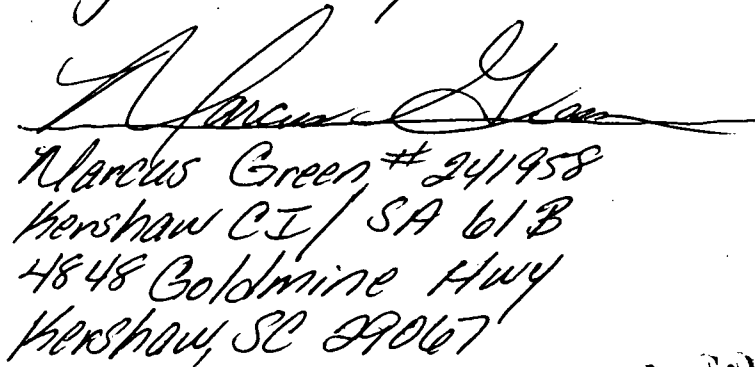 Marcus Green
Marcus Green # 241958
Kershaw CI / SA 61B
4848 Goldmine Hwy
Kershaw, SC 29067